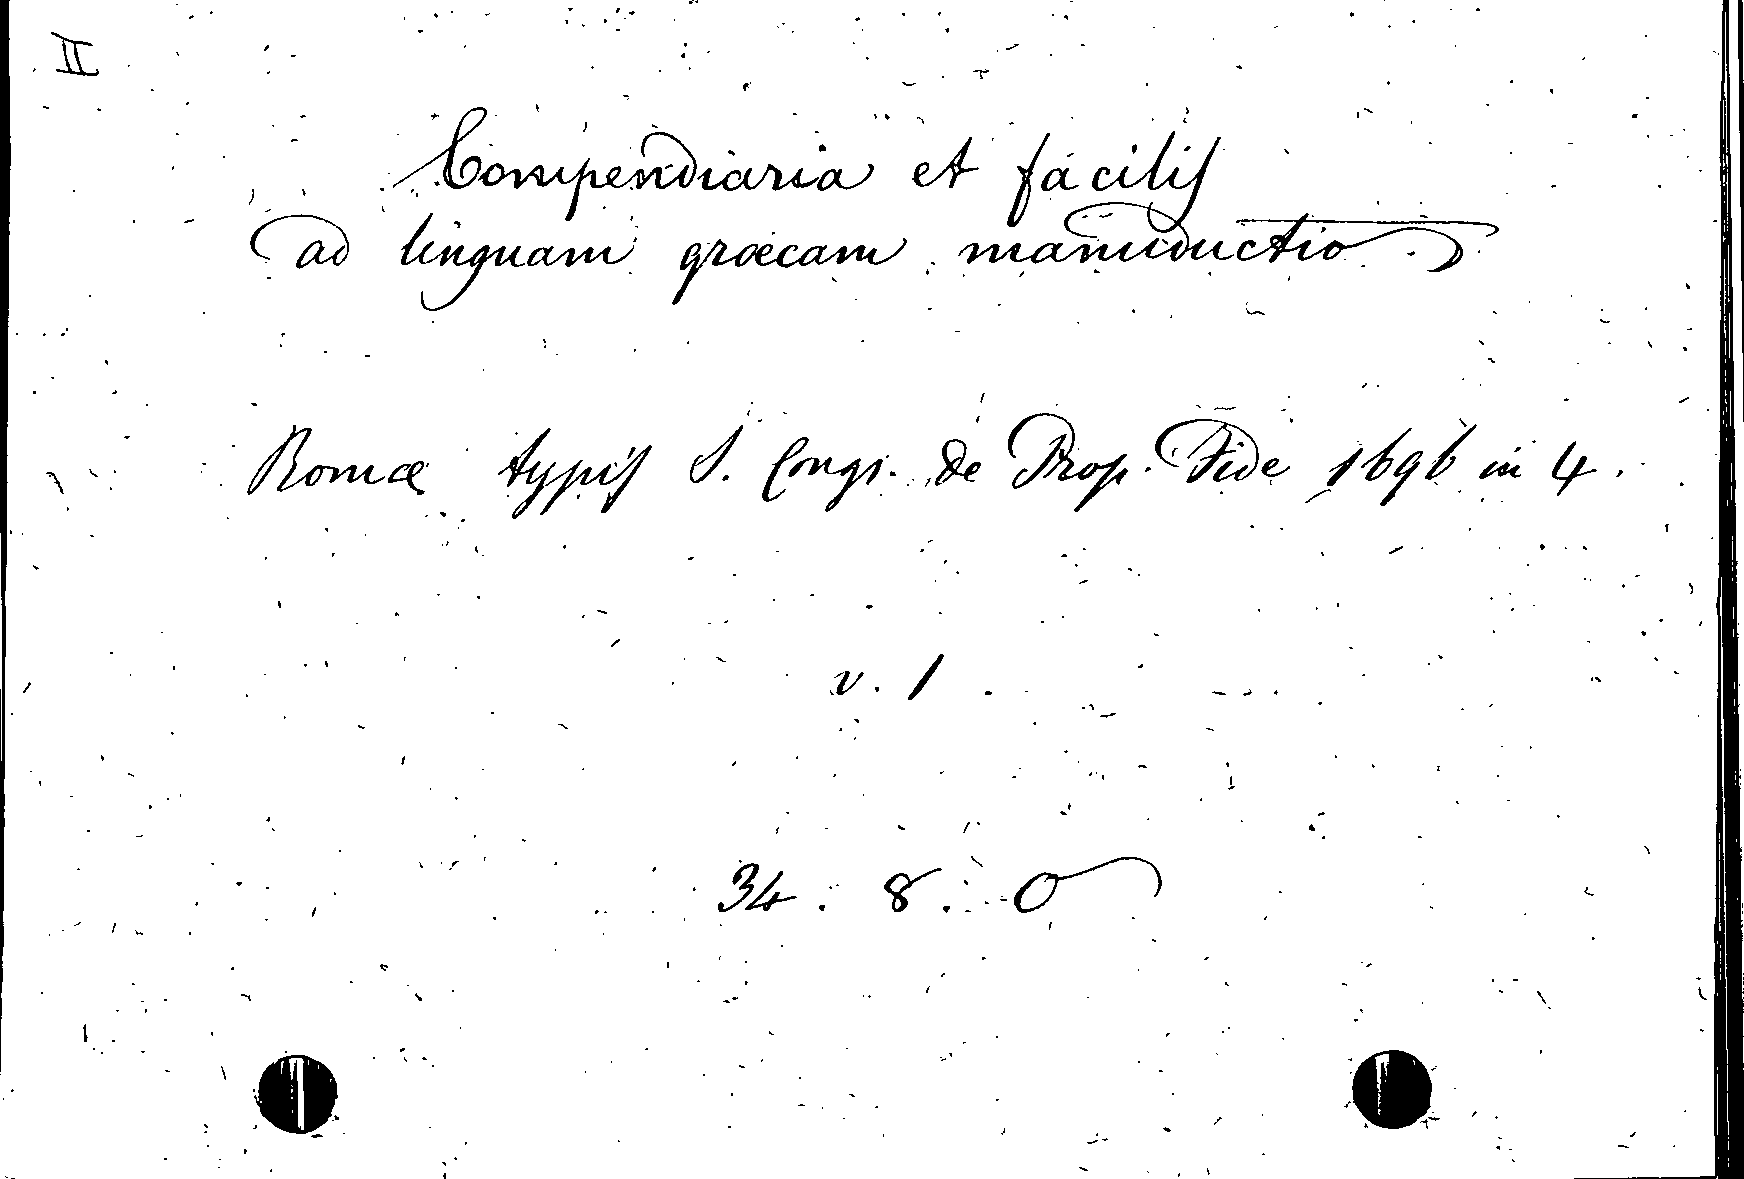 II
Compendiaria et facilis
ad linguam græcam manuductio
Romæ typis S. Congr. de Prop. Fide 1696 in 4.
v. 1
34. 8. O